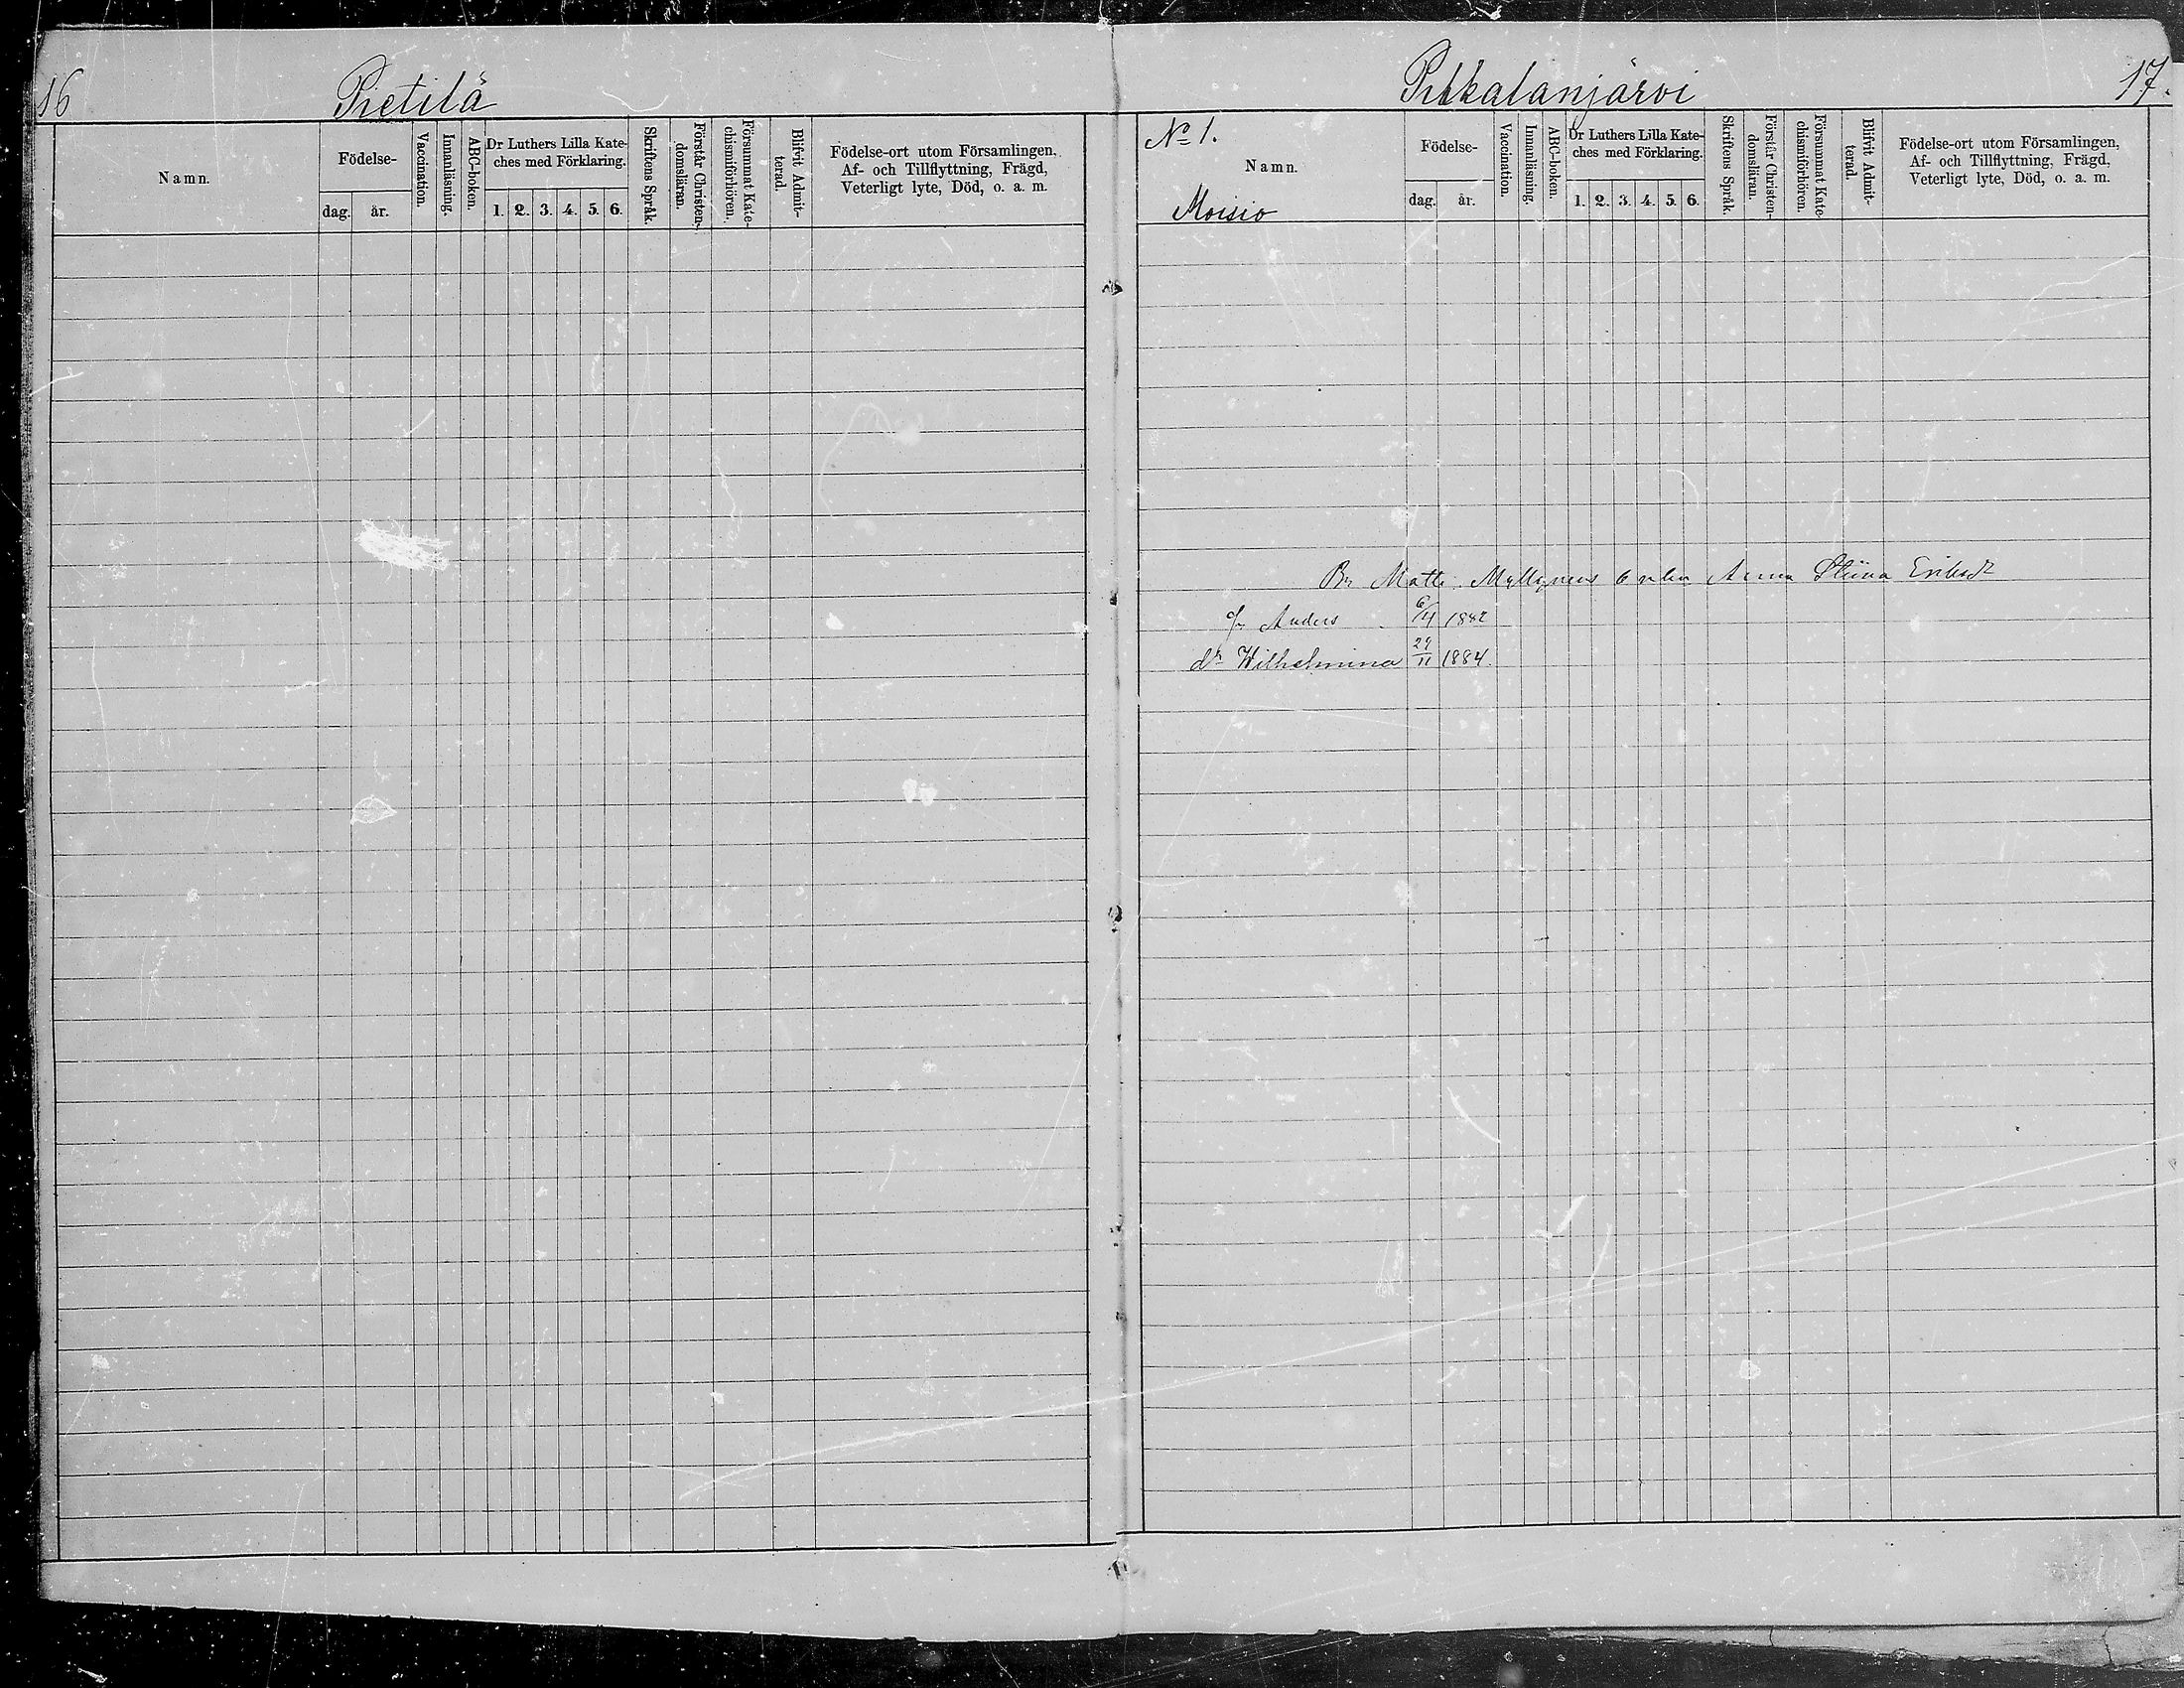 16
Pietilä
Namn.
Födelse-
dag. år.
Vaccination.
Innanläsning.
ABC-boken.
Dr Luthers Lilla Kate-
ches med Förklaring.
1. 2. 3. 4. 5. 6.
Skriftens Språk.
Förstår Christen-
domsläran.
Försummat Kate-
chismiförhören.
Blifvit Admit-
terad.
Födelse-ort utom Församlingen,
Af- och Tillflyttning, Frägd,
Veterligt lyte, Död, o. a. m.
Pitkalanjärvi
17.
No 1.
Namn.
Moisio
Födelse-
dag. år.
Vaccination.
Innanläsning.
ABC-boken.
Dr Luthers Lilla Kate-
ches med Förklaring.
1. 2. 3. 4. 5. 6.
Skriftens Språk.
Förstår Christen-
domsläran.
Försummat Kate-
chismiförhören.
Blifvit Admit-
terad.
Födelse-ort utom Församlingen,
Af- och Tillflyttning, Frägd,
Veterligt lyte, Död, o. a. m.
Matts Myllynens enka Anna Stiina Eriksdr
Anders 6/4 1842
dr Wilhelmina 29/11 1884.